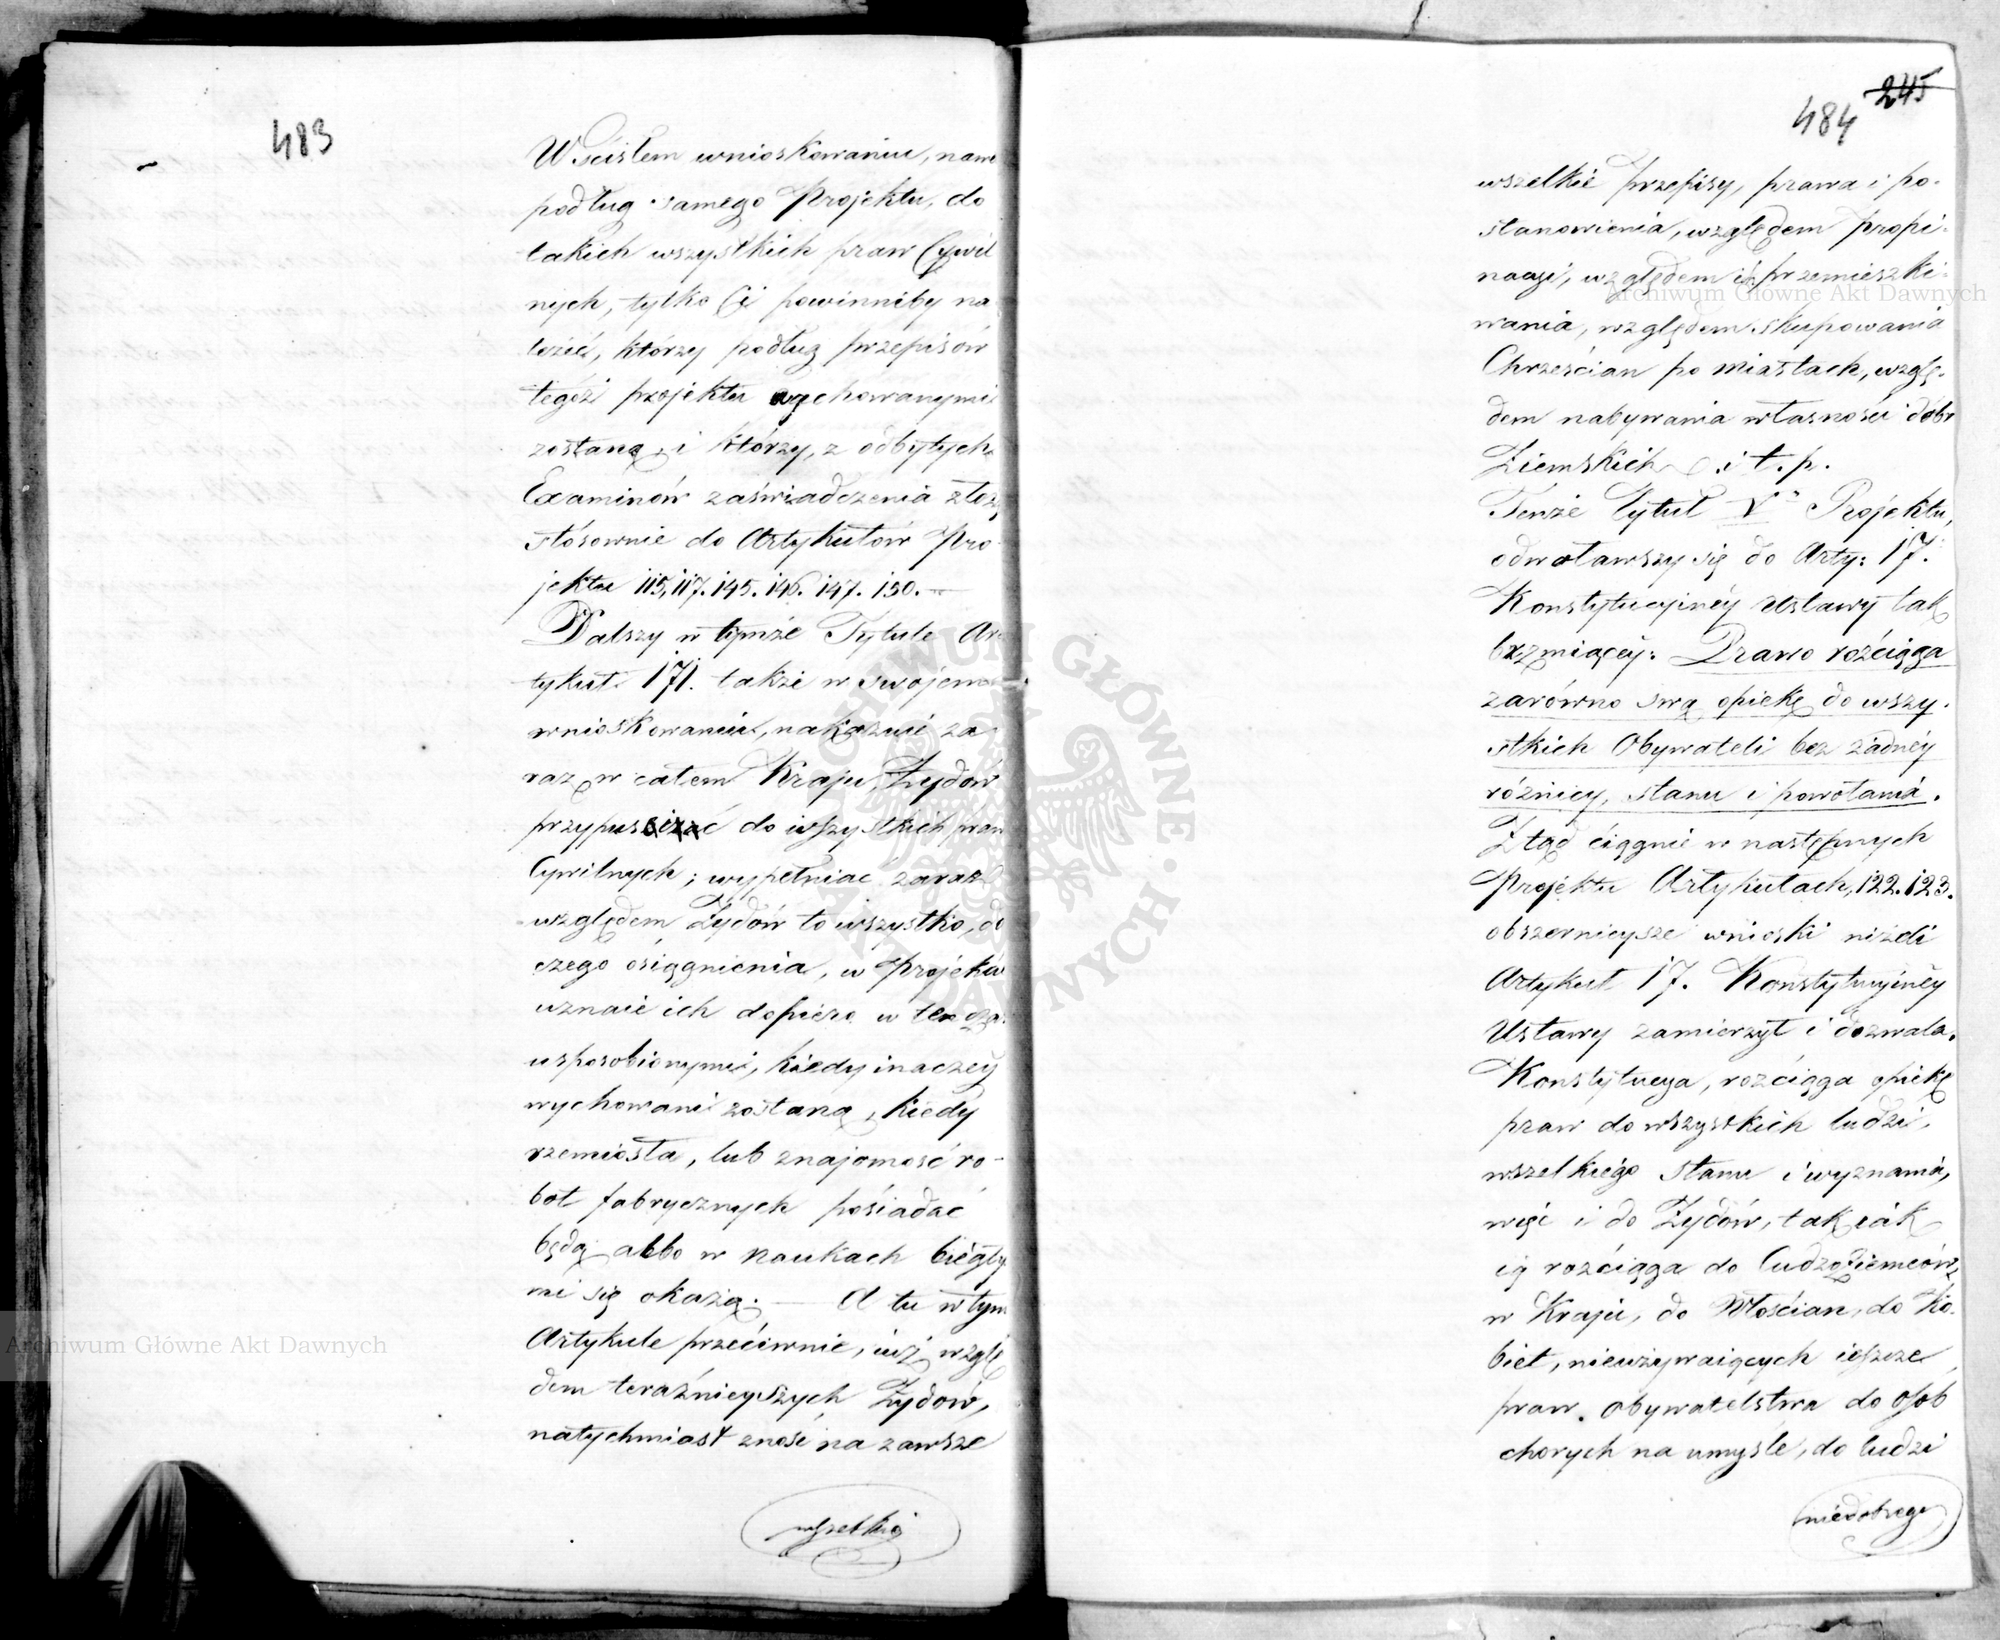 483
W ścisłem wnioskowaniu, nawe
podług samego Projektu, do
takich wszystkich praw Cywil
nych, tylko Ci powinniby na
leżéć, którzy podług przepisów
tegoż projektu wychowanymi
zostaną, i którzy, z odbytych
Examinów zaświadczenia złożą
stósownie do Artykułów Pro
jektu 115, 117. 145. 146. 147. 150. —
Dalszy w tymże Tytule Ar
tykuł 171. także w swojem
wnioskowaniu, nakazuie za
raz w całem Kraju, Żydów
przypuszczać do wszystkich praw
Cywilnych; wypełniać zaraz
względem Żydów to wszystko, do
czego osiągnienia, w Projekcie
uznaie ich dopiero w ten cza
usposobionymi, kiedy inaczey
wychowani zostaną, kiedy
rzemiosła, lub znajomość ro-
bot fabrycznych posiadać
będą albo w naukach biegły
mi się okażą. — A tu w tym
Artykule przeciwnie, iuż wzglę
dem teraźnieyszych Żydów,
natychmiast znosi na zawsze
wszelkie
245
484
wszelkie przepisy, prawa i po-
stanowienia, względem propi-
nacyi, względem ich przemieszki-
wania, względem skupowania
Chrześcian po miastach, wzglę-
dem nabywania własności dóbr
Ziemskich i t. p.
Tenże Tytuł V° Projektu,
odwoławszy się do Arty: 17.
Konstytucyinéy Ustawy tak
brzmiącéy: Prawo rozciąga
zarówno swą opiekę do wszy-
stkich Obywateli bez żadnéy
różnicy, stanu i powołania.
Ztąd ciągnie w następnych
Projektu Artykułach, 122. 123.
obszernieysze wnioski niżeli
Artykuł 17. Konstytucyinéy
Ustawy zamierzył i dozwala.
Konstytucya, rozciąga opiekę
praw do wszystkich ludzi,
wszelkiégo stanu i wyznania,
więc i do Żydów, tak iak
ią rozciąga do Cudzoziemców
w Kraju, do Włościan, do Ko-
biet, nieużywaiących ieszcze
praw Obywatelstwa do osob
chorych na umyśle, do ludzi
niedobrego
Archiwum Główne Akt Dawnych
Archiwum Główne Akt Dawnych
ARCHIWUM GŁÓWNE AKT DAWNYCH